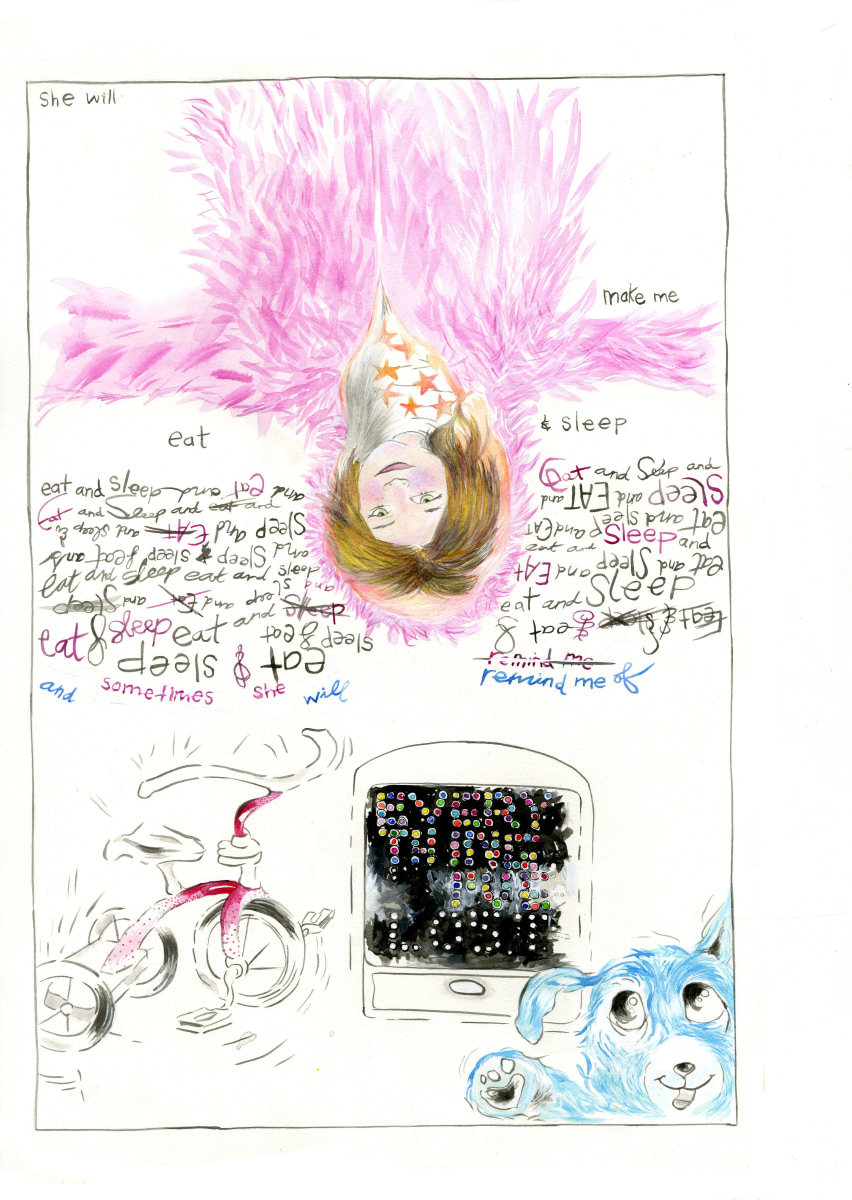 She will
make me
eat
& sleep
eat and sleep and Eat and
Eat and Sleep and eat and
Sleep and EAT and sleep &
and Sleep & sleep &eat and
eat and sleep eat and sleep
and sleep and Eat and Sleep
eat & sleep eat and Sleep
sleep & eat
eat & sleep
Eat and Sleep and
Sleep and EAT and
eat and sleep and EAT
eat and Sleep and
eat and Sleep and EAT
eat and Sleep
& eat &
eat & sleep &
and sometimes she will
remind me
remind me of
EVERY
THING
I'VE
LOST